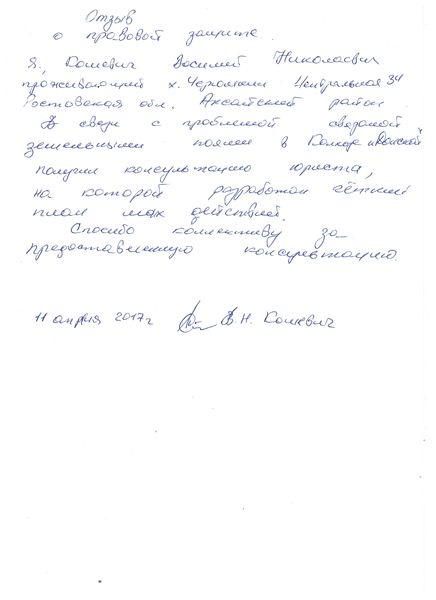 Отзыв
о правовой защите.
Я, Кошевич Василий Николаевич
проживающий х. Черюмкин Центральная 34
Ростовская обл. Аксайский район
В связи с проблемой
земельным паяем в
получил консультацию юриста,
на которой разработан чёткий
план моих действий.
Спосибо коллективу за
предоставленную консультацию.
11 апреля 2017г В.Н. Кошевич